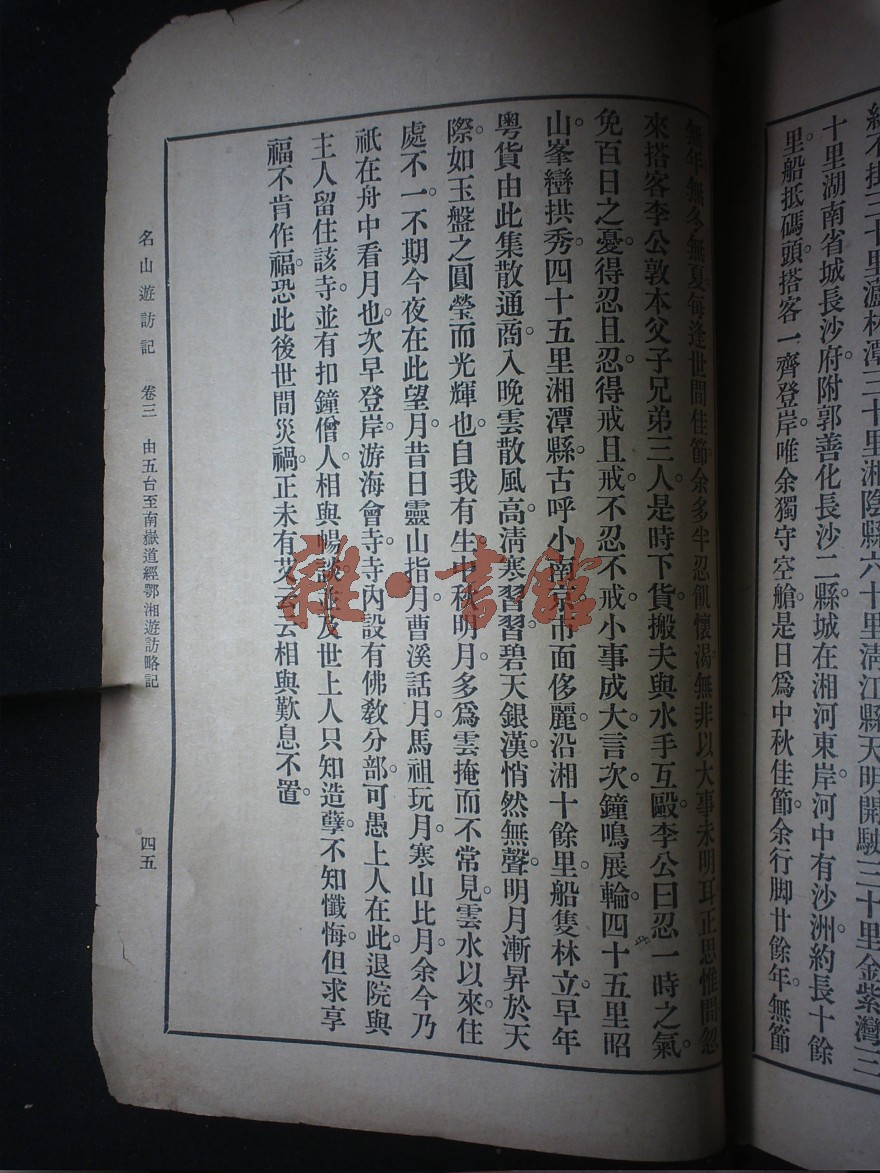 經不掛三十里蘆林潭三十里湘陰縣六十里淸江縣天明開駛三十里金紫灣三
十里湖南省城長沙府附郭善化長沙二縣城在湘河東岸河中有沙洲約長十餘
里船抵碼頭。搭客一齊登岸。唯余獨守空艙。是日爲中秋佳節。余行脚廿餘年。無節
無年。無冬無夏。每逢世間佳節。余多半忍飢懷渴。無非以大事未明耳。正思惟間。忽
來搭客李公敦本父子兄弟三人。是時下貨搬夫與水手互毆。李公曰。忍一時之氣。
免百日之憂。得忍且忍。得戒且戒。不忍不戒。小事成大。言次鐘鳴展輪。四十五里昭
山。峯巒拱秀。四十五里湘潭縣。古呼小南京。市面侈麗。沿湘十餘里。船隻林立。早年
粵貨由此集散通商。入晚雲散風高。淸寒習習。碧天銀漢。悄然無聲。明月漸昇於天
際。如玉盤之圓瑩而光輝也。自我有生。中秋明月。多爲雲掩而不常見。雲水以來。住
處不一。不期今夜在此望月。昔日靈山指月。曹溪話月。馬祖玩月。寒山比月。余今乃
祇在舟中看月也。次早登岸。游海會寺。寺內設有佛敎分部。可愚上人在此退院。與
主人留住該寺。並有扣鐘僧人。相與暢談。並及世上人只知造孽。不知懺悔。但求享
福。不肯作福。恐此後世間災禍。正未有艾云云。相與歎息不置。
名山遊訪記 卷三 由五台至南嶽道經鄂湘遊訪略記 四五
雜·書館